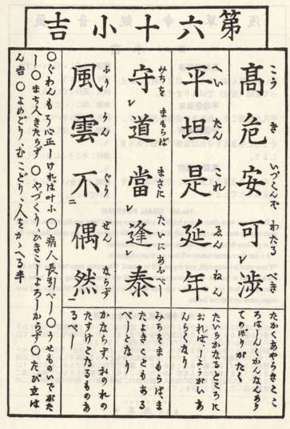 第六十小吉
こうきいづくんぞわたるべき
髙危安可渉
たかくあやうきとこ
ろはしんくかんなんあり
てのぼりがたく
へいたんこれえんねん
平坦是延年
たいらかなるところに
おればしようがいあ
んらくなり
みちをまもらばまさにたいにあふべし
守道當逢泰
みちをまもらばま
たよきこともある
べしとなり
ふううんぐうぜんならず
風雲不偶然
かならず、おのれの
たすけとなるものあ
るべし
〇ぐわんもう心正しければ叶ふ〇病人長引べし〇うせものいでがた
し〇まち人きたらず〇やづくり、ひきこしよろしからず〇たび立は
ん吉〇よめどり、むこどり、人をかゝへる半